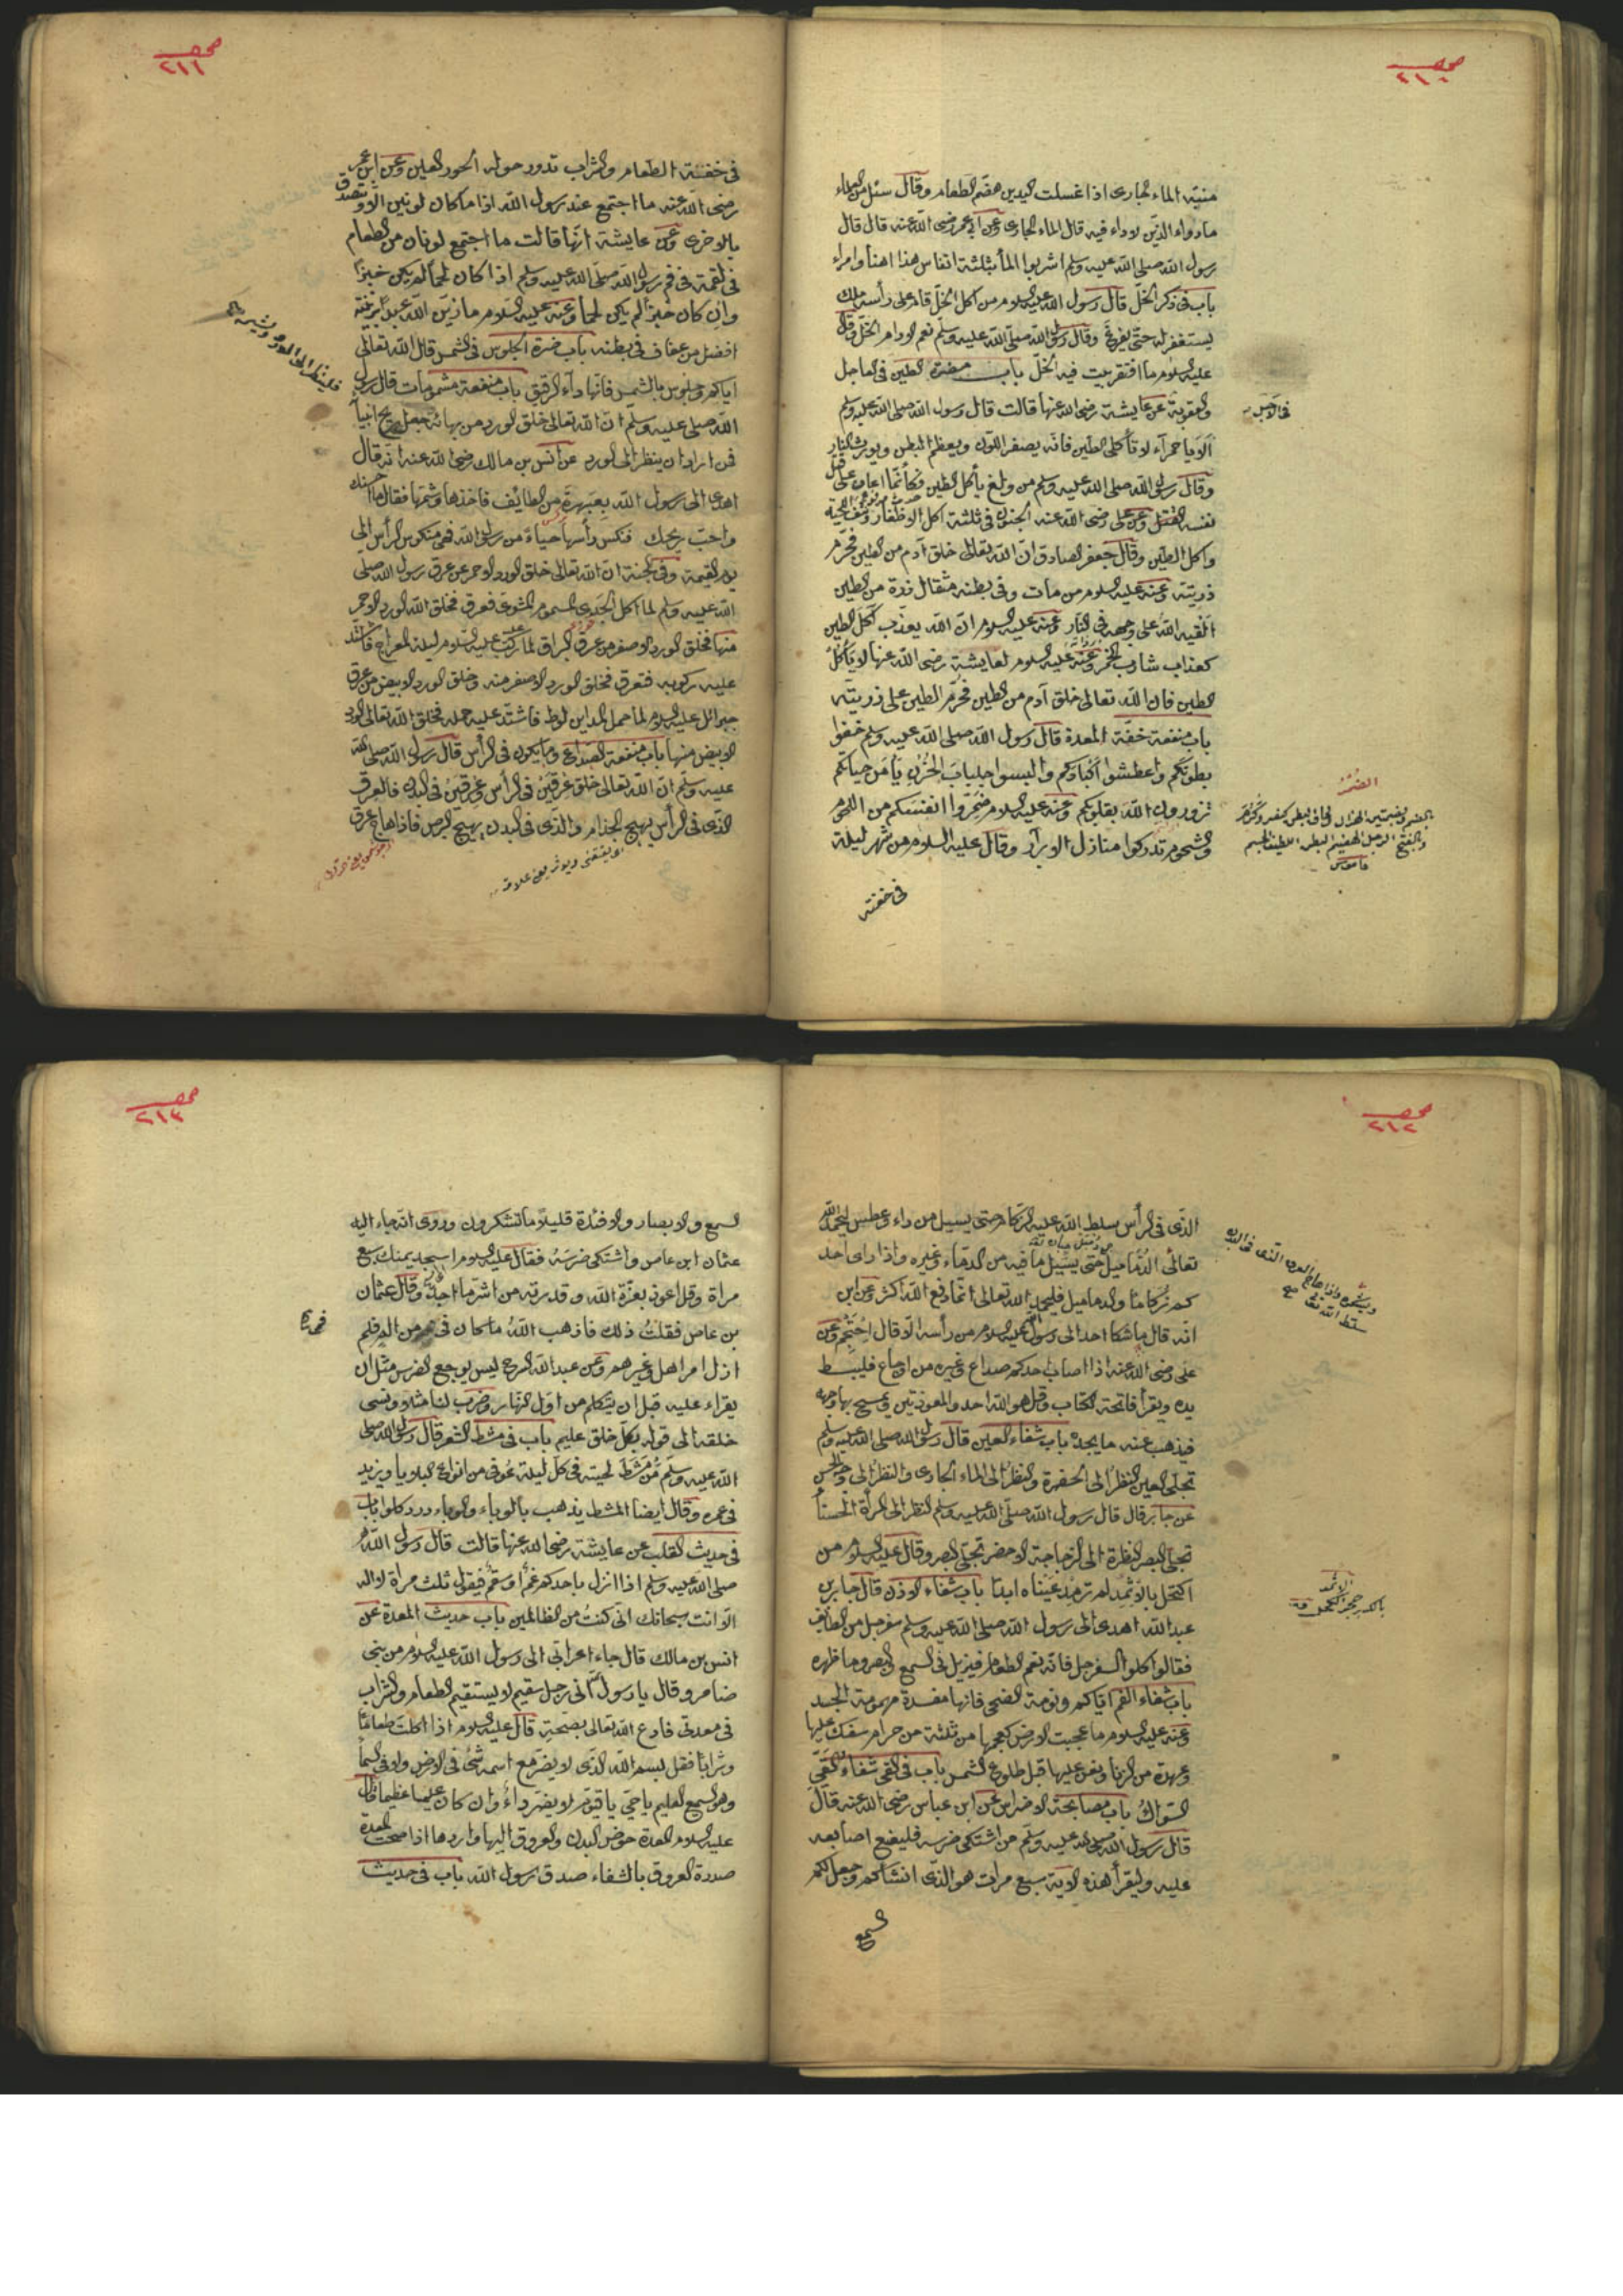 صحـ
٢١٠
منيته الماء الجارى اذا غسلت اليدين هضم الطعام وقال سئل من العلماء
ما دواء الذين لا داء فيه قال الماء الجارى وعن ابى عمر رضى الله عنه قال قال
رسول الله صلى الله عليه وسلم اشربوا الماء بثلثة انفاس هذا اهنأ وامراء
باب فى ذكر الخلّ قال رسول الله عليه السلام من اكل الخلّ قام على رأسه ملك
يستغفر له حتى يفرغ وقال رسول الله صلى الله عليه وسلم نعم الادام الخلّ وقال
عليه السلام ما افتقر بيت فيه الخلّ باب مضرة الطين فى العاجل
والعقوبة عن عايشة رضى الله عنها قالت قال رسول الله صلى الله عليه وسلم
فى الآجل
ألا يا حمراء لا تأكلى الطين فانه يصفر اللون ويعظم البطن ويورث النار
وقال رسول الله صلى الله عليه وسلم من ولغ يأكل الطين فكأنما اعان على قتل
نفسه وعن على رضى الله عنه الجنون فى ثلثة اكل الاظفار ونتف اللحية
واكل الطين وقال جعفر الصادق ان الله تعالى خلق آدم من الطين فحرّم
ذريته وعنه عليه السلام من مات وفى بطنه مثقال ذرة من الطين
القيه الله على وجهه فى النار وعنه عليه السلام ان الله يعذب آكل الطين
كعذاب شارب الخمر وعنه عليه السلام لعايشة رضى الله عنها لا تأكل
الطين فان الله تعالى خلق آدم من الطين فحرّم الطين على ذريته
باب منفعة خفة المعدة قال رسول الله صلى الله عليه وسلم خففوا
بطونكم واعطشوا اكبادكم والبسوا جلباب الحزن يأمن حياتكم
تزورون الله بقلوبكم وعنه عليه السلام ضمّروا انفسكم من اللحم
والشحوم تدركوا منازل الابرار وقال عليه السلام من شهر ليلة
الضُمُرُ
بالضم وبضمتين الهزال
قاموس
فى خفته
صحـ
٢١١
فى خفته الطعام والشراب تدور حوله الحور العين وعن ابن عمر
رضى الله عنه ما اجتمع عند رسول الله اذا ما كان لونين الا وتصدق
بالاخرى وعن عايشة انها قالت ما اجتمع لونان من الطعام
فى لقمة فى فم رسول الله صلى الله عليه وسلم اذا كان لحماً لم يكن خبزاً
وان كان خبزاً لم يكن لحماً وعنه عليه السلام ما زين الله عبداً بزينة
افضل من عفاف فى بطنه باب مضرة الجلوس فى الشمس قال الله تعالى
اياكم وجلوس بالشمس فانها داء الرقيق باب منفعة مشمومات قال رسول
الله صلى عليه وسلم ان الله تعالى خلق الورد من بهائه جعل ريح انبياء
فمن اراد ان ينظر الى الورد عن انس بن مالك رضى الله عنه انه قال
فلينظر الى الورد ويشمه صح
اهدى الى رسول الله بعبهرة من الطائف فاخذها وشمها فقال ما احسنك
واحب ريحك فنكس رأسها حياءً من رسول الله فهى منكوس الرأس الى
يوم القيمة وفى الجنة ان الله تعالى خلق الورد الاحمر عن عرق رسول الله صلى
الله عليه وسلم لما اكل الجدى المسموم المشوى فعرق فخلق الله الورد الاحمر
منها فخلق الورد الاصفر من عرق البراق لما ركب عليه السلام ليلة المعراج فاشتد
عليه ركوبه فتعرق فخلق الورد الاصفر منه وخلق الورد الابيض من عرق
جبرائل عليه السلام لما حمل المداين لوط فاشتد عليه حمله فخلق الله تعالى الورد
الابيض منها باب منفعة الصداع وما يكون فى الرأس قال رسول الله صلى الله
عليه وسلم ان الله تعالى خلق عرقين فى الرأس وعرقين فى البدن فالعرق
الذى فى الرأس يهيج الجذام والذى فى البدن يهيج البرص فاذا هاج عرق
صحـ
٢١٢
الذى فى الرأس سلط الله عليه الزكام حتى يسيل من داء وعطس ليحمد الله
تعالى الدماميل حتى يسيل ما فيه من الدماء وغيره واذا رأى احد
كم زكاماً والدماميل فليحمد الله تعالى انما دفع الله اكثر وعن ابن
انه قال ما شكا احد الى رسول الله عليه السلام من رأسه الا قال احتجم وعن
على رضى الله عنه اذا اصاب احدكم صداع وغيره من اوجاع فليبسط
يده ويقرأ فاتحة الكتاب وقل هو الله احد والمعوذتين ويمسح بها وجهه
فيذهب عنه ما يجده باب شفاء العين قال رسول الله صلى الله عليه وسلم
تجلى العين النظر الى الخضرة والنظر الى الماء الجارى والنظر الى وجه الحسن
عن جابر قال قال رسول الله صلى الله عليه وسلم النظر الى المرأة الحسناً
تجلى البصر النظرة الى الزجاجة الاخضر تجلى البصر وقال عليه السلام من
اكتحل بالاثمد لم ترمد عيناه ابداً باب شفاء الاذن قال جابر بن
الاثمد
بالكسر حجر الكحل
عبد الله اهدى الى رسول الله صلى الله عليه وسلم سفرجل من الطائف
فقالوا كلوا السفرجل فانه نعم الطعام فيزيل فى السمع والبصر وما ظهره
باب شفاء الفم اياكم ونومة الضحى فانها مفسدة مهمومة الجسد
وعنه عليه السلام ما عجبت الارض كعجبها من ثلثة من حرام سفك عليها
وعهدة من الزنا ونفر عليها قبل طلوع الشمس باب فى القئ شفاء القئ
السواك باب مصابحة الاضراس عن ابن عباس رضى الله عنه قال
قال رسول الله صلى الله عليه وسلم من اشتكى ضرسه فليضع اصابعه
عليه وليقرأ هذه الاية سبع مرات هو الذى انشأكم وجعل لكم
السمع
صحـ
٢١٣
السمع والابصار والافئدة قليلاً ما تشكرون وروى انه جاء اليه
عثمان ابن عاص واشتكى ضرسه فقال عليه السلام امسحه بيمينك سبع
مرأة وقل اعوذ بعزة الله وقدرته من اشر ما اجد وقال عثمان
بن عاص فقلت ذلك فاذهب الله ما كان فى من الم فلم
ازل امر اهلى وغيرهم وعن عبد الله المرجح ليس يوجع الضرس مثل ان
يقراء عليه قبل ان يتكلم من اول النهار وضرب لنا مثلا ونسى
خلقه الى قوله بكل خلق عليم باب فى مشط الشعر قال رسول الله صلى
الله عليه وسلم من مشط لحيته فى كل ليلة عوفى من انواع البلايا ويزيد
فى عمره وقال ايضا المشط يذهب بالوباء والوباء ورد كلوا باب
فى حديث القلب عن عايشة رضى الله عنها قالت قال رسول الله
صلى الله عليه وسلم اذا انزل باحدكم غم او سقم فيقول ثلث مرأة لا اله
الا انت سبحانك انى كنت من الظالمين باب حديث المعدة عن
انس بن مالك قال جاء اعرابى الى رسول الله عليه السلام من بنى
ضامر وقال يا رسول الله انى رجل سقيم لا يستقيم الطعام والشراب
فى معدتى فادع الله تعالى بصحة قال عليه السلام اذا اكلت طعاماً
وشراباً فقل بسم الله الذى لا يضر مع اسمه شئ فى الارض ولا فى السماء
وهو السميع العليم يا حى يا قيوم لا يضر داءً وان كان عليها عظيما قال
عليه السلام المعدة حوض البدن والعروق اليها واردها اذا صحت المعدة
صدرة العروق بالشفاء صدق رسول الله باب فى حديث